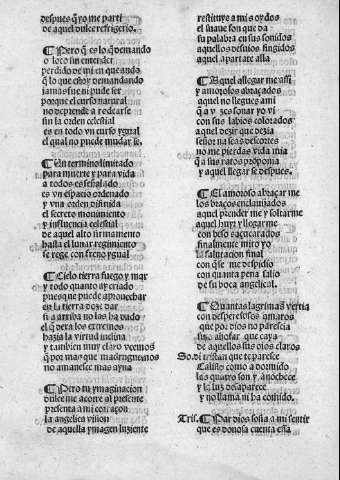 despues q̃ yo me parti
de aquel dulce refrigerio.
¶ Pero q̃ es lo q̃ demando
o loco sin entender
perdido de mi en que ando
q̃ lo que estoy demandando
jamas fue ni pude ser
porque el curso natural
no depende a redearse
sin la orden celestial
es en todo vn curso ygual
el qual no puede mudar se.
¶ Un termino limitado
para muerte y para vida
a todos es señalado
es vn espacio ordenado
y vna orden difinida
el secreto mouimiento
y influencia celestial
de aquel alto firmamento
hasta el lunar regimiento
se rege con freno ygual
¶ Cielo tierra fuego y mar
y todo quanto ay criado
puesque puede aprouechar
en la tierra dessear
si a arriba no las ha dado
el q̃ dera los estremos
hasta la virtud inclina
y tambien muy claro veemos
q̃ por mas que madruguemos
no amanesce mas ayna
¶ Pero tu ymaginacion
dulce me acorre al presente
presenta a mi coraçon
la angelica vision
de aquella ymagen luziente
restituye a mis oydos
el suaue son que da
su palabra en sus sonidos
aquellos desuios fingidos
aquel apartate alla
¶ Aquel allegar me assi
y amorosos abraçados
aquel no llegues ami
que a vezes sonar yo vi
con sus labios colorados
aquel dezir que dezia
señor na seas descortes
no me pierdas vida mia
q̃ a sus ratos proponia
y aquel llegar se despues.
¶ El amoroso abraçar me
los braços enclauijados
aquel prender me y soltar me
aquel huyr y llegar me
con beso açucarados
finalmente miro yo
la salutacion final
con q̃ se me despidio
con quanta pena salio
de su boca angelical.
¶ Quantas lagrimas vertia
con desperessos amaros
que por dios no parescia
sino aljofar que caya
de aquellos sus ojos claros
So. di tristan que te paresce
Calisto como a dormido
las quatro son y anochece
y la luz desaparece
y no llama ni ha comido.
Tris. ¶ Par dios sosia a mi sentir
que es donosa cuenta essa